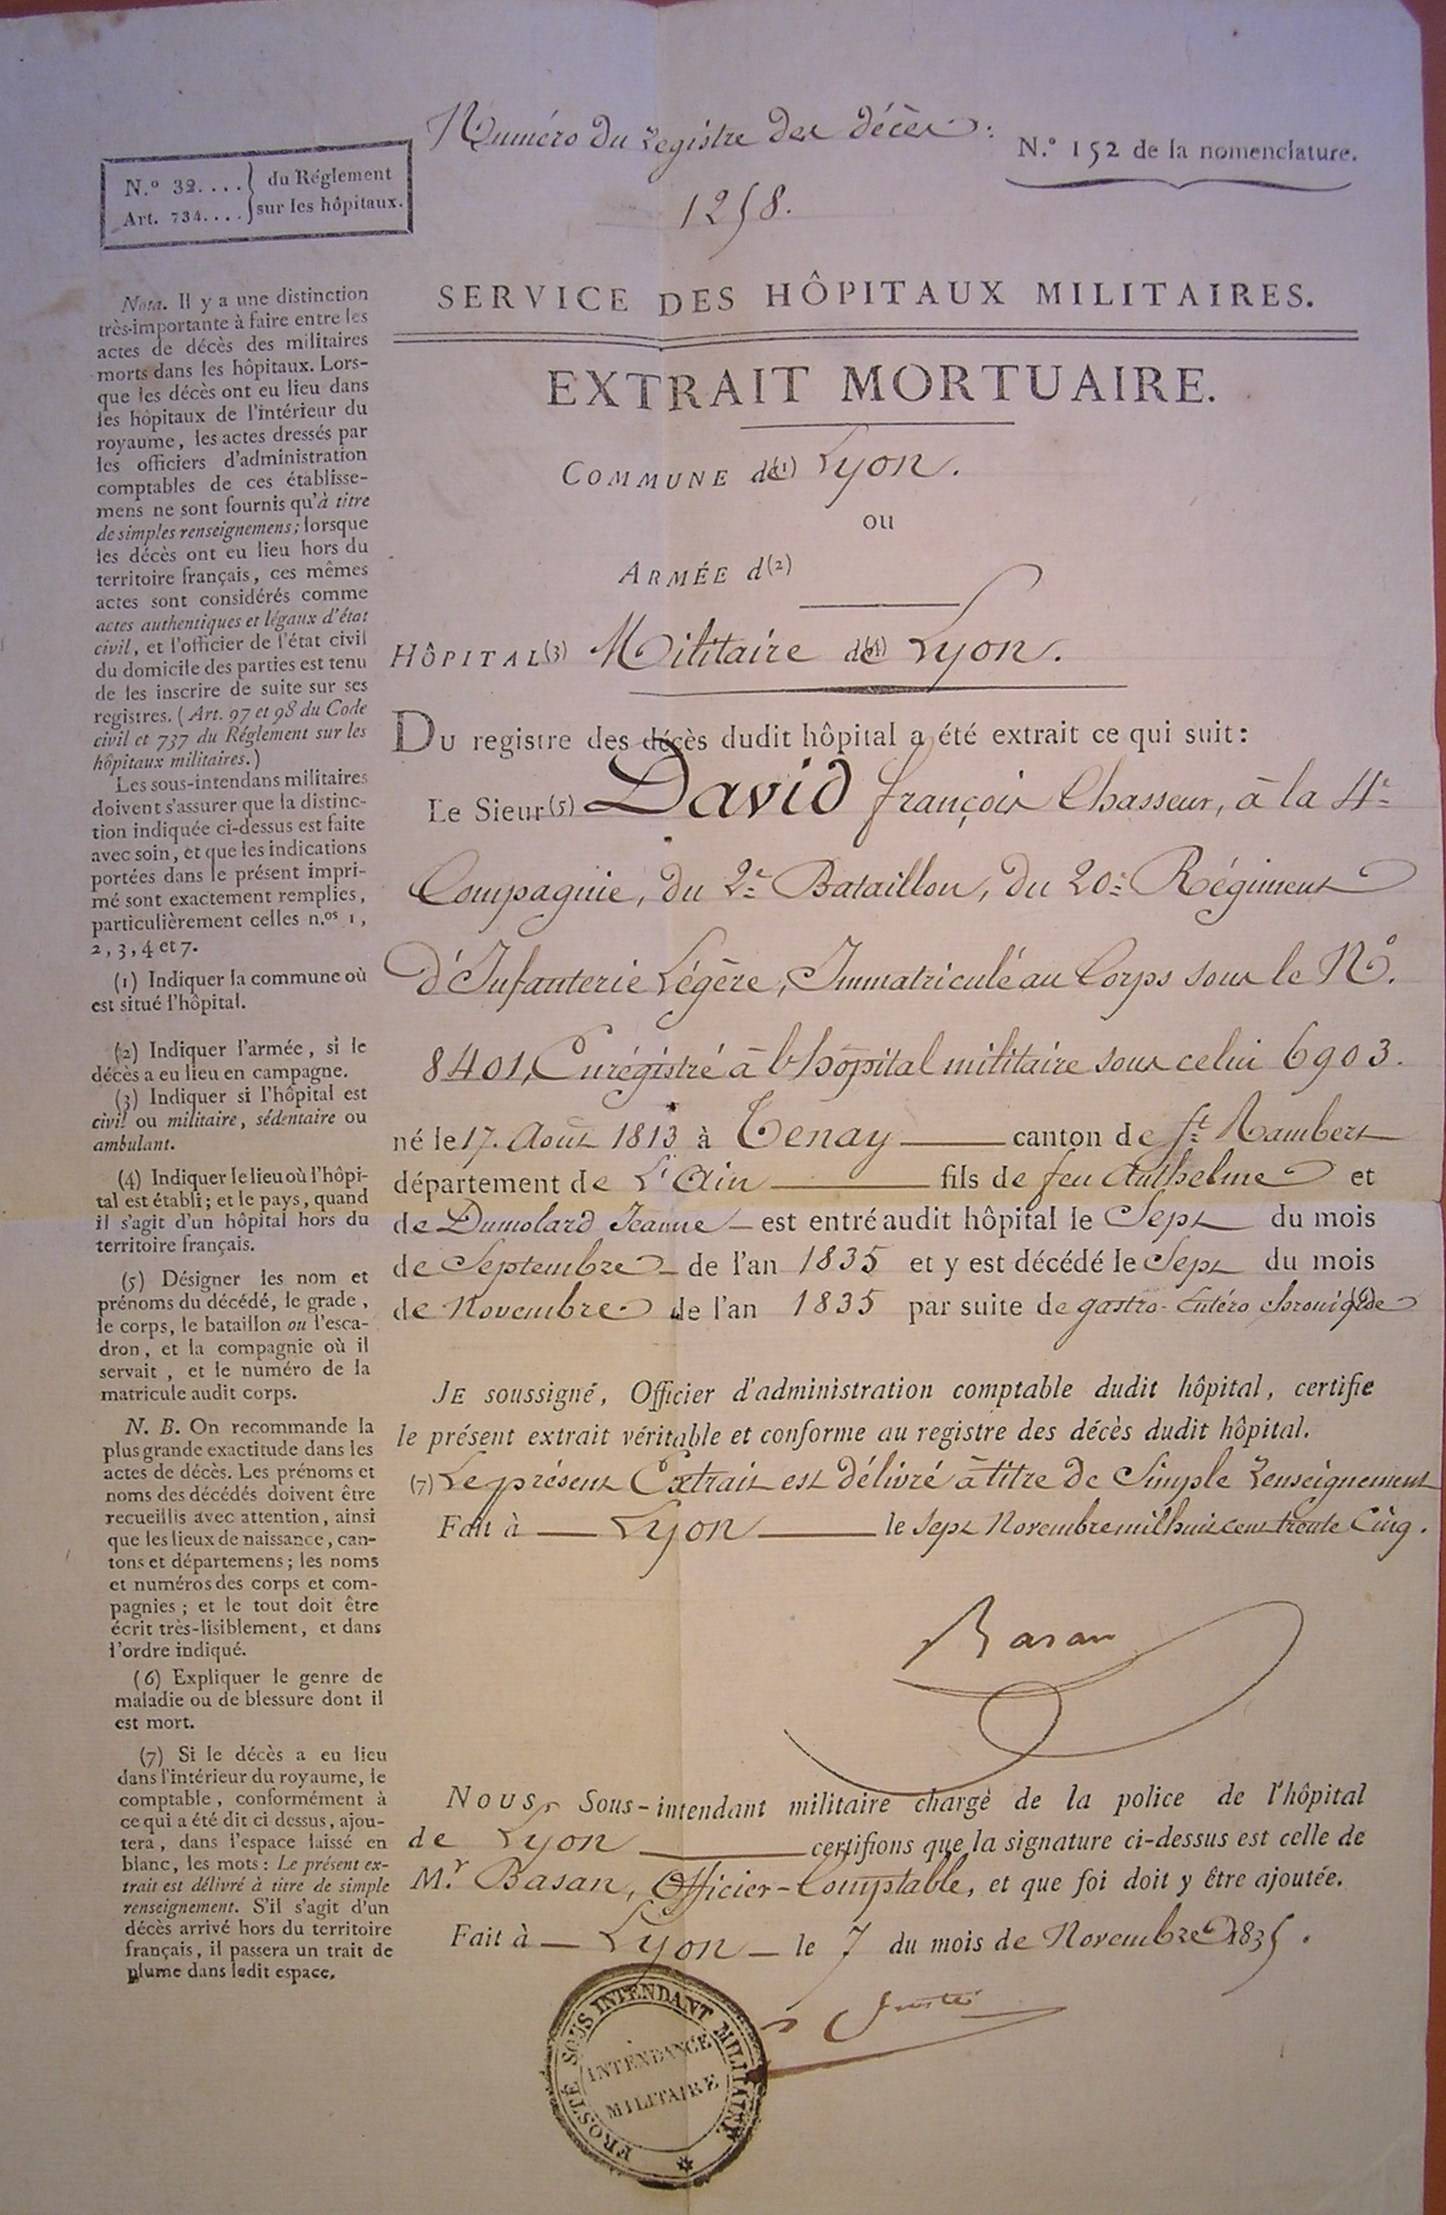 Numéro du registre des décès :
1258.
N.º 152 de la nomenclature.
N.º 32.... } du Réglement
Art. 734.... } sur les hôpitaux.
SERVICE DES HÔPITAUX MILITAIRES.
EXTRAIT MORTUAIRE.
COMMUNE de(1) Lyon.
ou
ARMÉE d(2)
HÔPITAL(3) Militaire de(4) Lyon.
Du registre des décès dudit hôpital a été extrait ce qui suit :
Le Sieur(5) David françois Chasseur, à la 4e
Compagnie, du 2e Bataillon, du 20e Régiment
d'Infanterie Légère, Immatriculé au Corps sous le No.
8401, Enrégistré à l'hôpital militaire sous celui 6903.
né le 17. Août 1813 à Tenay canton de St Rambert
département de L'Ain fils de feu Anthelme et
de Dumolard Jeanne est entré audit hôpital le Sept du mois
de Septembre de l'an 1835 et y est décédé le Sept du mois
de Novembre de l'an 1835 par suite de gastro-Entéro chronique
JE soussigné, Officier d'administration comptable dudit hôpital, certifie
le présent extrait véritable et conforme au registre des décès dudit hôpital.
(7) Le présent Extrait est délivré à titre de Simple renseignement
Fait à Lyon le sept Novembre mil huit cent trente Cinq.
Basan
NOUS, Sous-intendant militaire chargé de la police de l'hôpital
de Lyon certifions que la signature ci-dessus est celle de
M.r Basan, Officier-Comptable, et que foi doit y être ajoutée.
Fait à Lyon le 7 du mois de Novembre 1835.
FROSTÉ SOUS INTENDANT MILITAIRE
INTENDANCE
MILITAIRE
Nota. Il y a une distinction
très-importante à faire entre les
actes de décès des militaires
morts dans les hôpitaux. Lors-
que les décès ont eu lieu dans
les hôpitaux de l'intérieur du
royaume, les actes dressés par
les officiers d'administration
comptables de ces établisse-
mens ne sont fournis qu'à titre
de simples renseignemens; lorsque
les décès ont eu lieu hors du
territoire français, ces mêmes
actes sont considérés comme
actes authentiques et légaux d'état
civil, et l'officier de l'état civil
du domicile des parties est tenu
de les inscrire de suite sur ses
registres. (Art. 97 et 98 du Code
civil et 737 du Réglement sur les
hôpitaux militaires.)
Les sous-intendans militaires
doivent s'assurer que la distinc-
tion indiquée ci-dessus est faite
avec soin, et que les indications
portées dans le présent impri-
mé sont exactement remplies,
particulièrement celles n.os 1,
2, 3, 4 et 7.
(1) Indiquer la commune où
est situé l'hôpital.
(2) Indiquer l'armée, si le
décès a eu lieu en campagne.
(3) Indiquer si l'hôpital est
civil ou militaire, sédentaire ou
ambulant.
(4) Indiquer le lieu où l'hôpi-
tal est établi; et le pays, quand
il s'agit d'un hôpital hors du
territoire français.
(5) Désigner les nom et
prénoms du décédé, le grade,
le corps, le bataillon ou l'esca-
dron, et la compagnie où il
servait, et le numéro de la
matricule audit corps.
N. B. On recommande la
plus grande exactitude dans les
actes de décès. Les prénoms et
noms des décédés doivent être
recueillis avec attention, ainsi
que les lieux de naissance, can-
tons et départemens; les noms
et numéros des corps et com-
pagnies; et le tout doit être
écrit très-lisiblement, et dans
l'ordre indiqué.
(6) Expliquer le genre de
maladie ou de blessure dont il
est mort.
(7) Si le décès a eu lieu
dans l'intérieur du royaume, le
comptable, conformément à
ce qui a été dit ci dessus, ajou-
tera, dans l'espace laissé en
blanc, les mots : Le présent ex-
trait est délivré à titre de simple
renseignement. S'il s'agit d'un
décès arrivé hors du territoire
français, il passera un trait de
plume dans ledit espace.